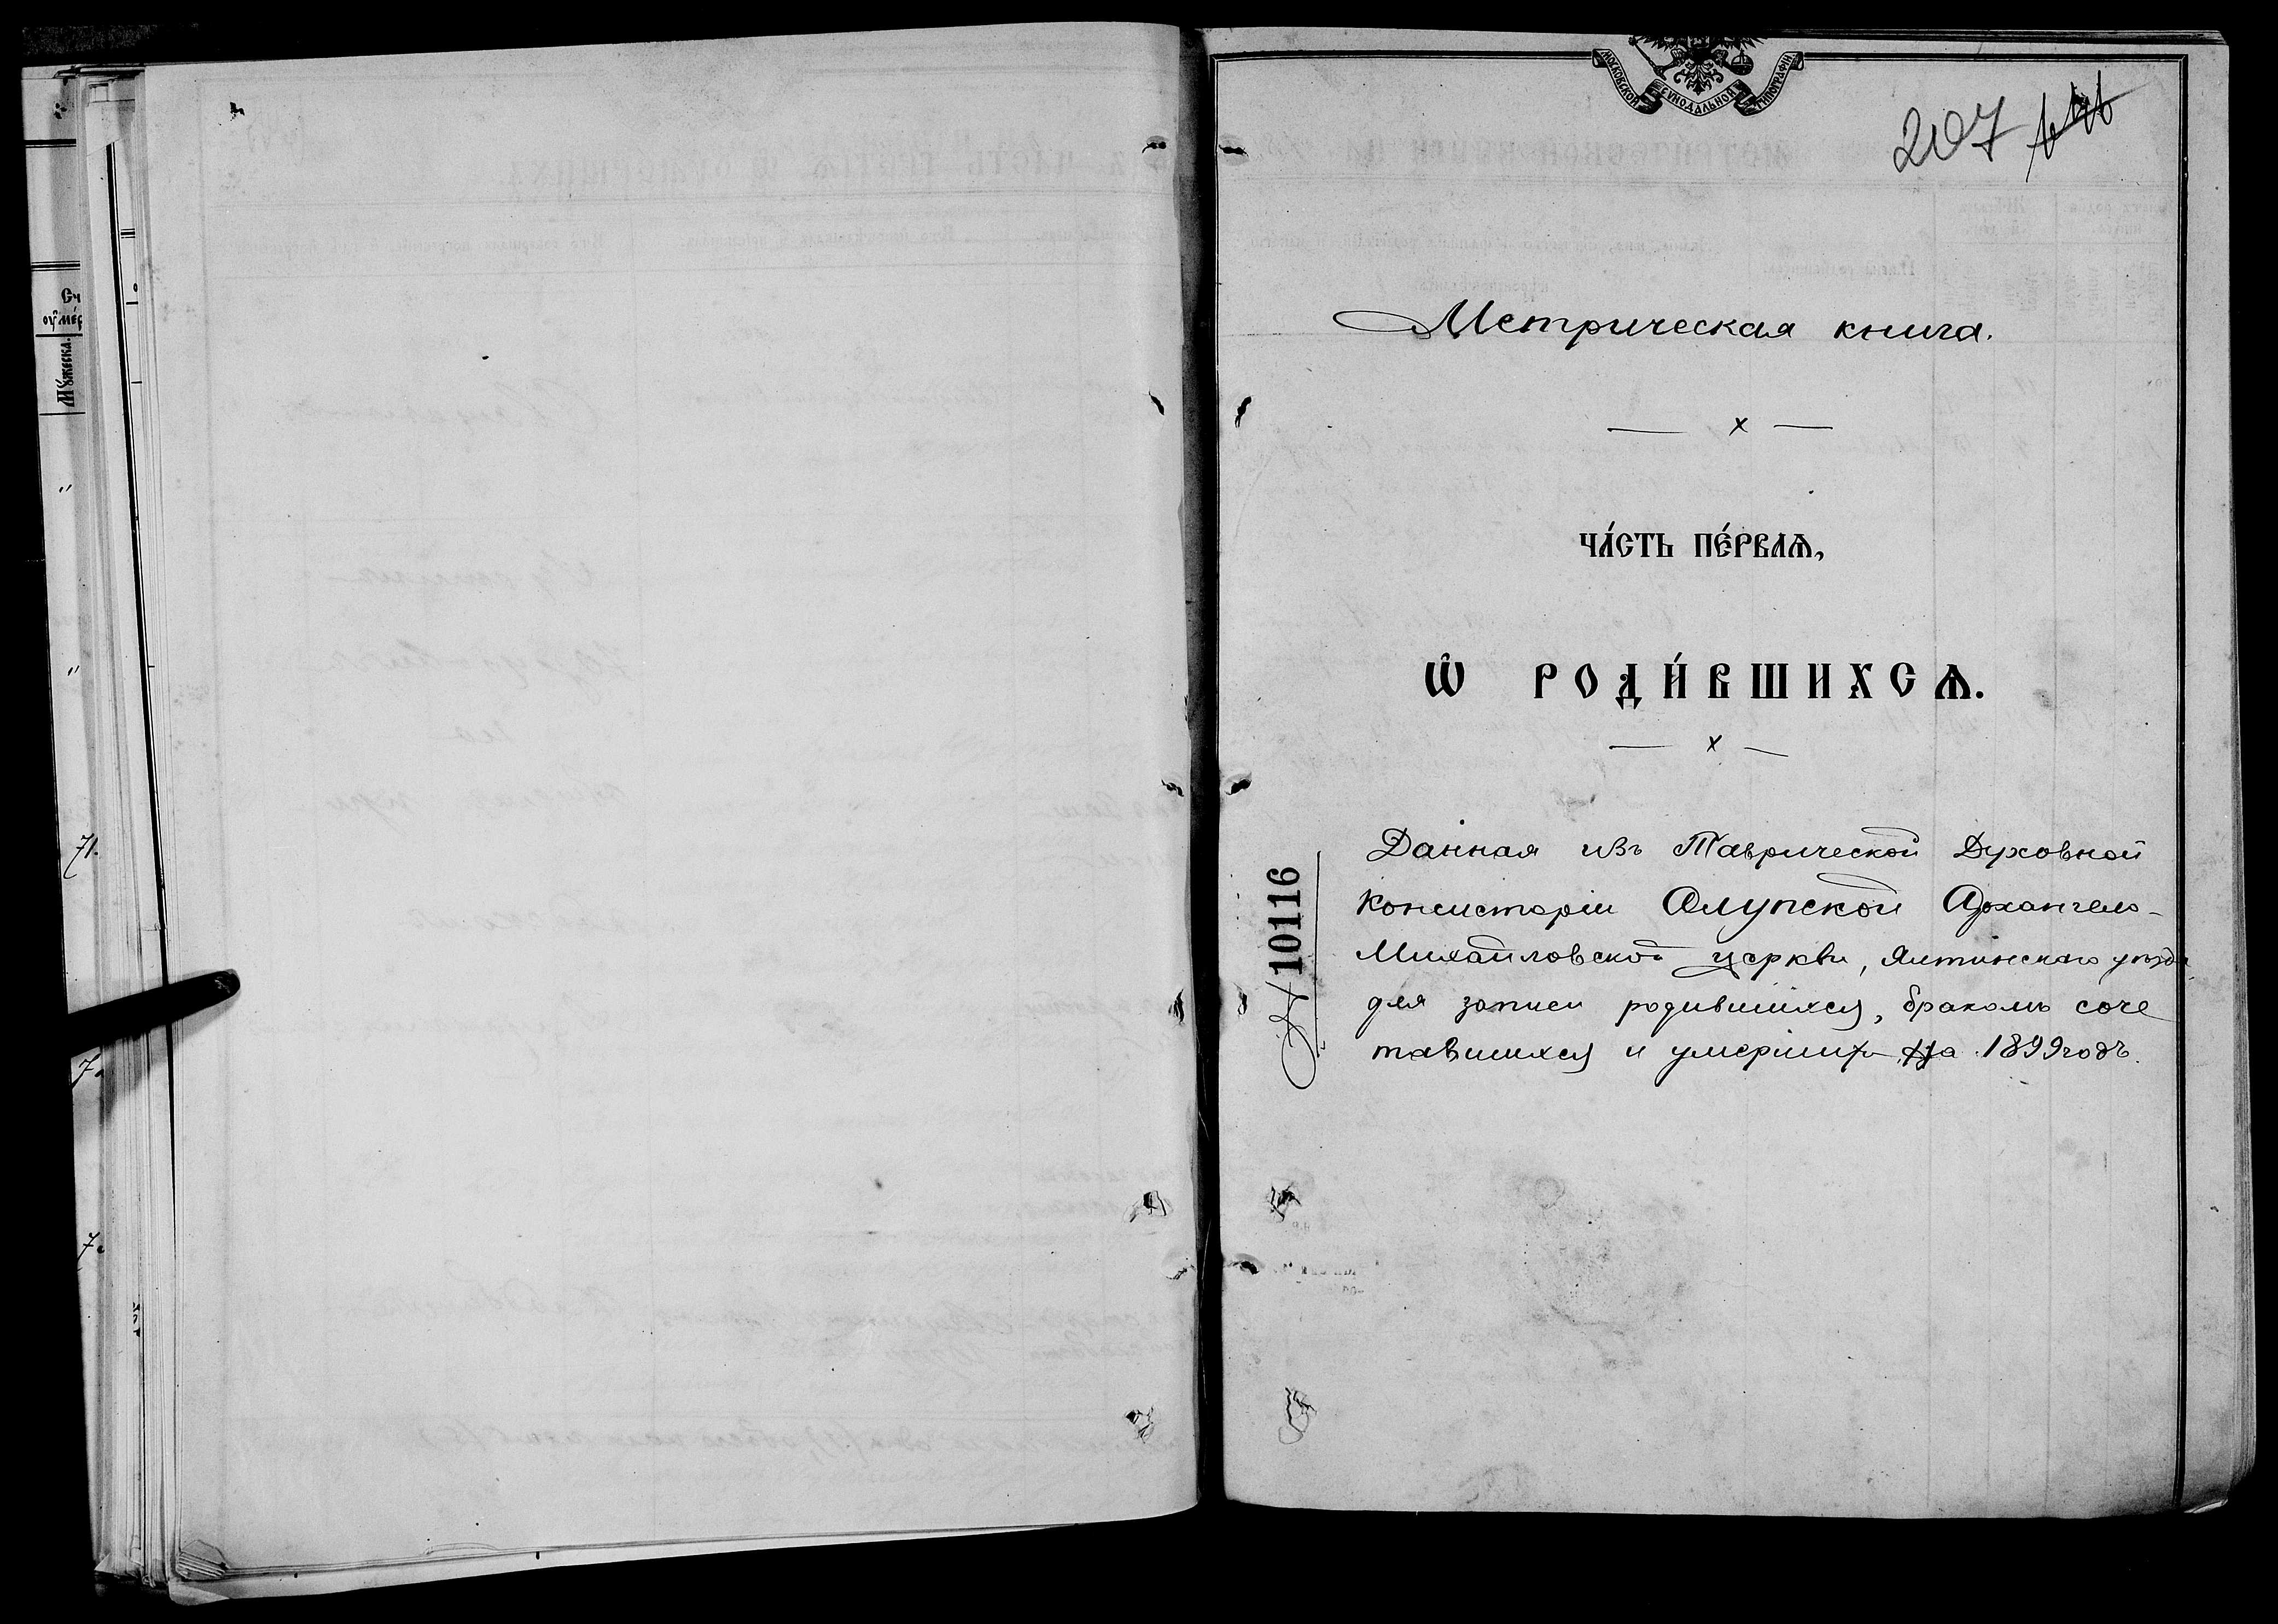 Сч
Мꙋ́жеска.
71.
7.
7.
МОСКОВСКОЙ СѴНОДАЛЬНОЙ ТИПОГРАФІИ
207
Метрическая книга.
— х —
ЧА́СТЬ ПЕ́РВАѦ,
Ѽ РОДИ́ВШИХСѦ.
— х —
№ 10116
Данная изъ Таврической Духовной
Консисторіи Алупской Архангело-
Михайловской церкви, Ялтинскаго уѣзда
для записи родившихся, бракомъ соче
тавшихся и умершихъ на 1899 годъ.